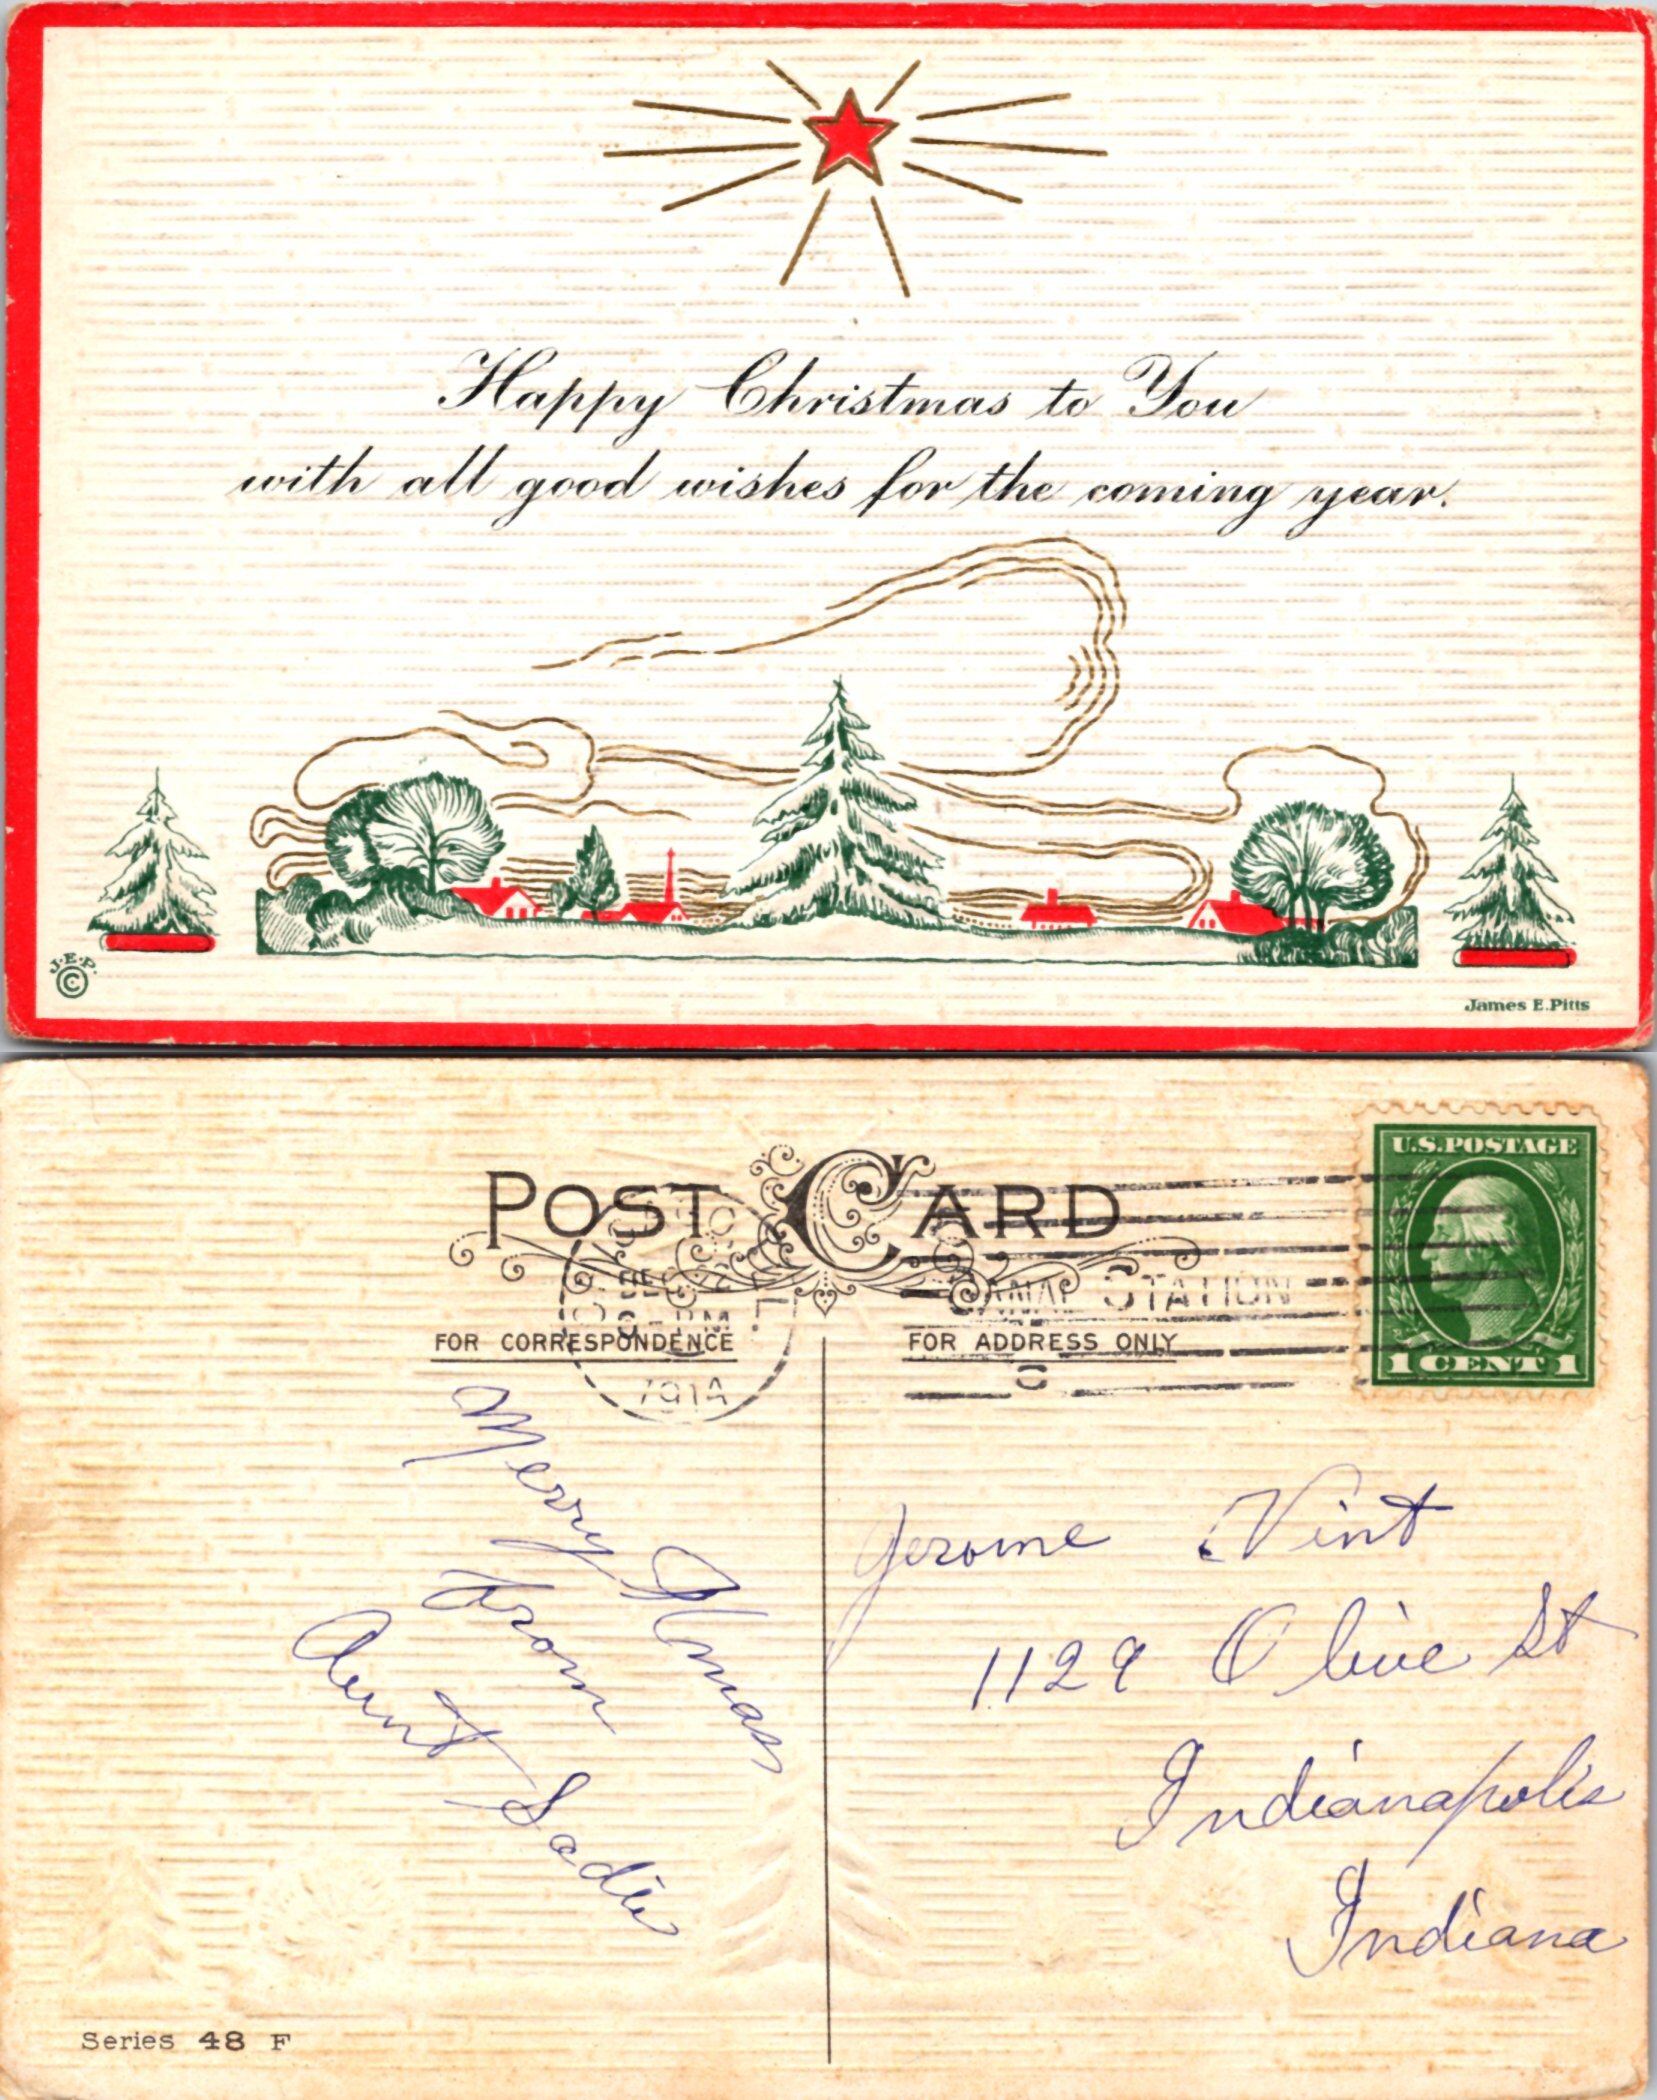 Happy Christmas to You
with all good wishes for the coming year.
J.E.P.
©
James E. Pitts
POST CARD
U.S. POSTAGE
1 CENT 1
STATION
PM
1914
FOR CORRESPONDENCE
FOR ADDRESS ONLY
Merry Xmas
From
Aunt Sadie
Jerome Vint
1129 Olive St
Indianapolis
Indiana
Series 48 F